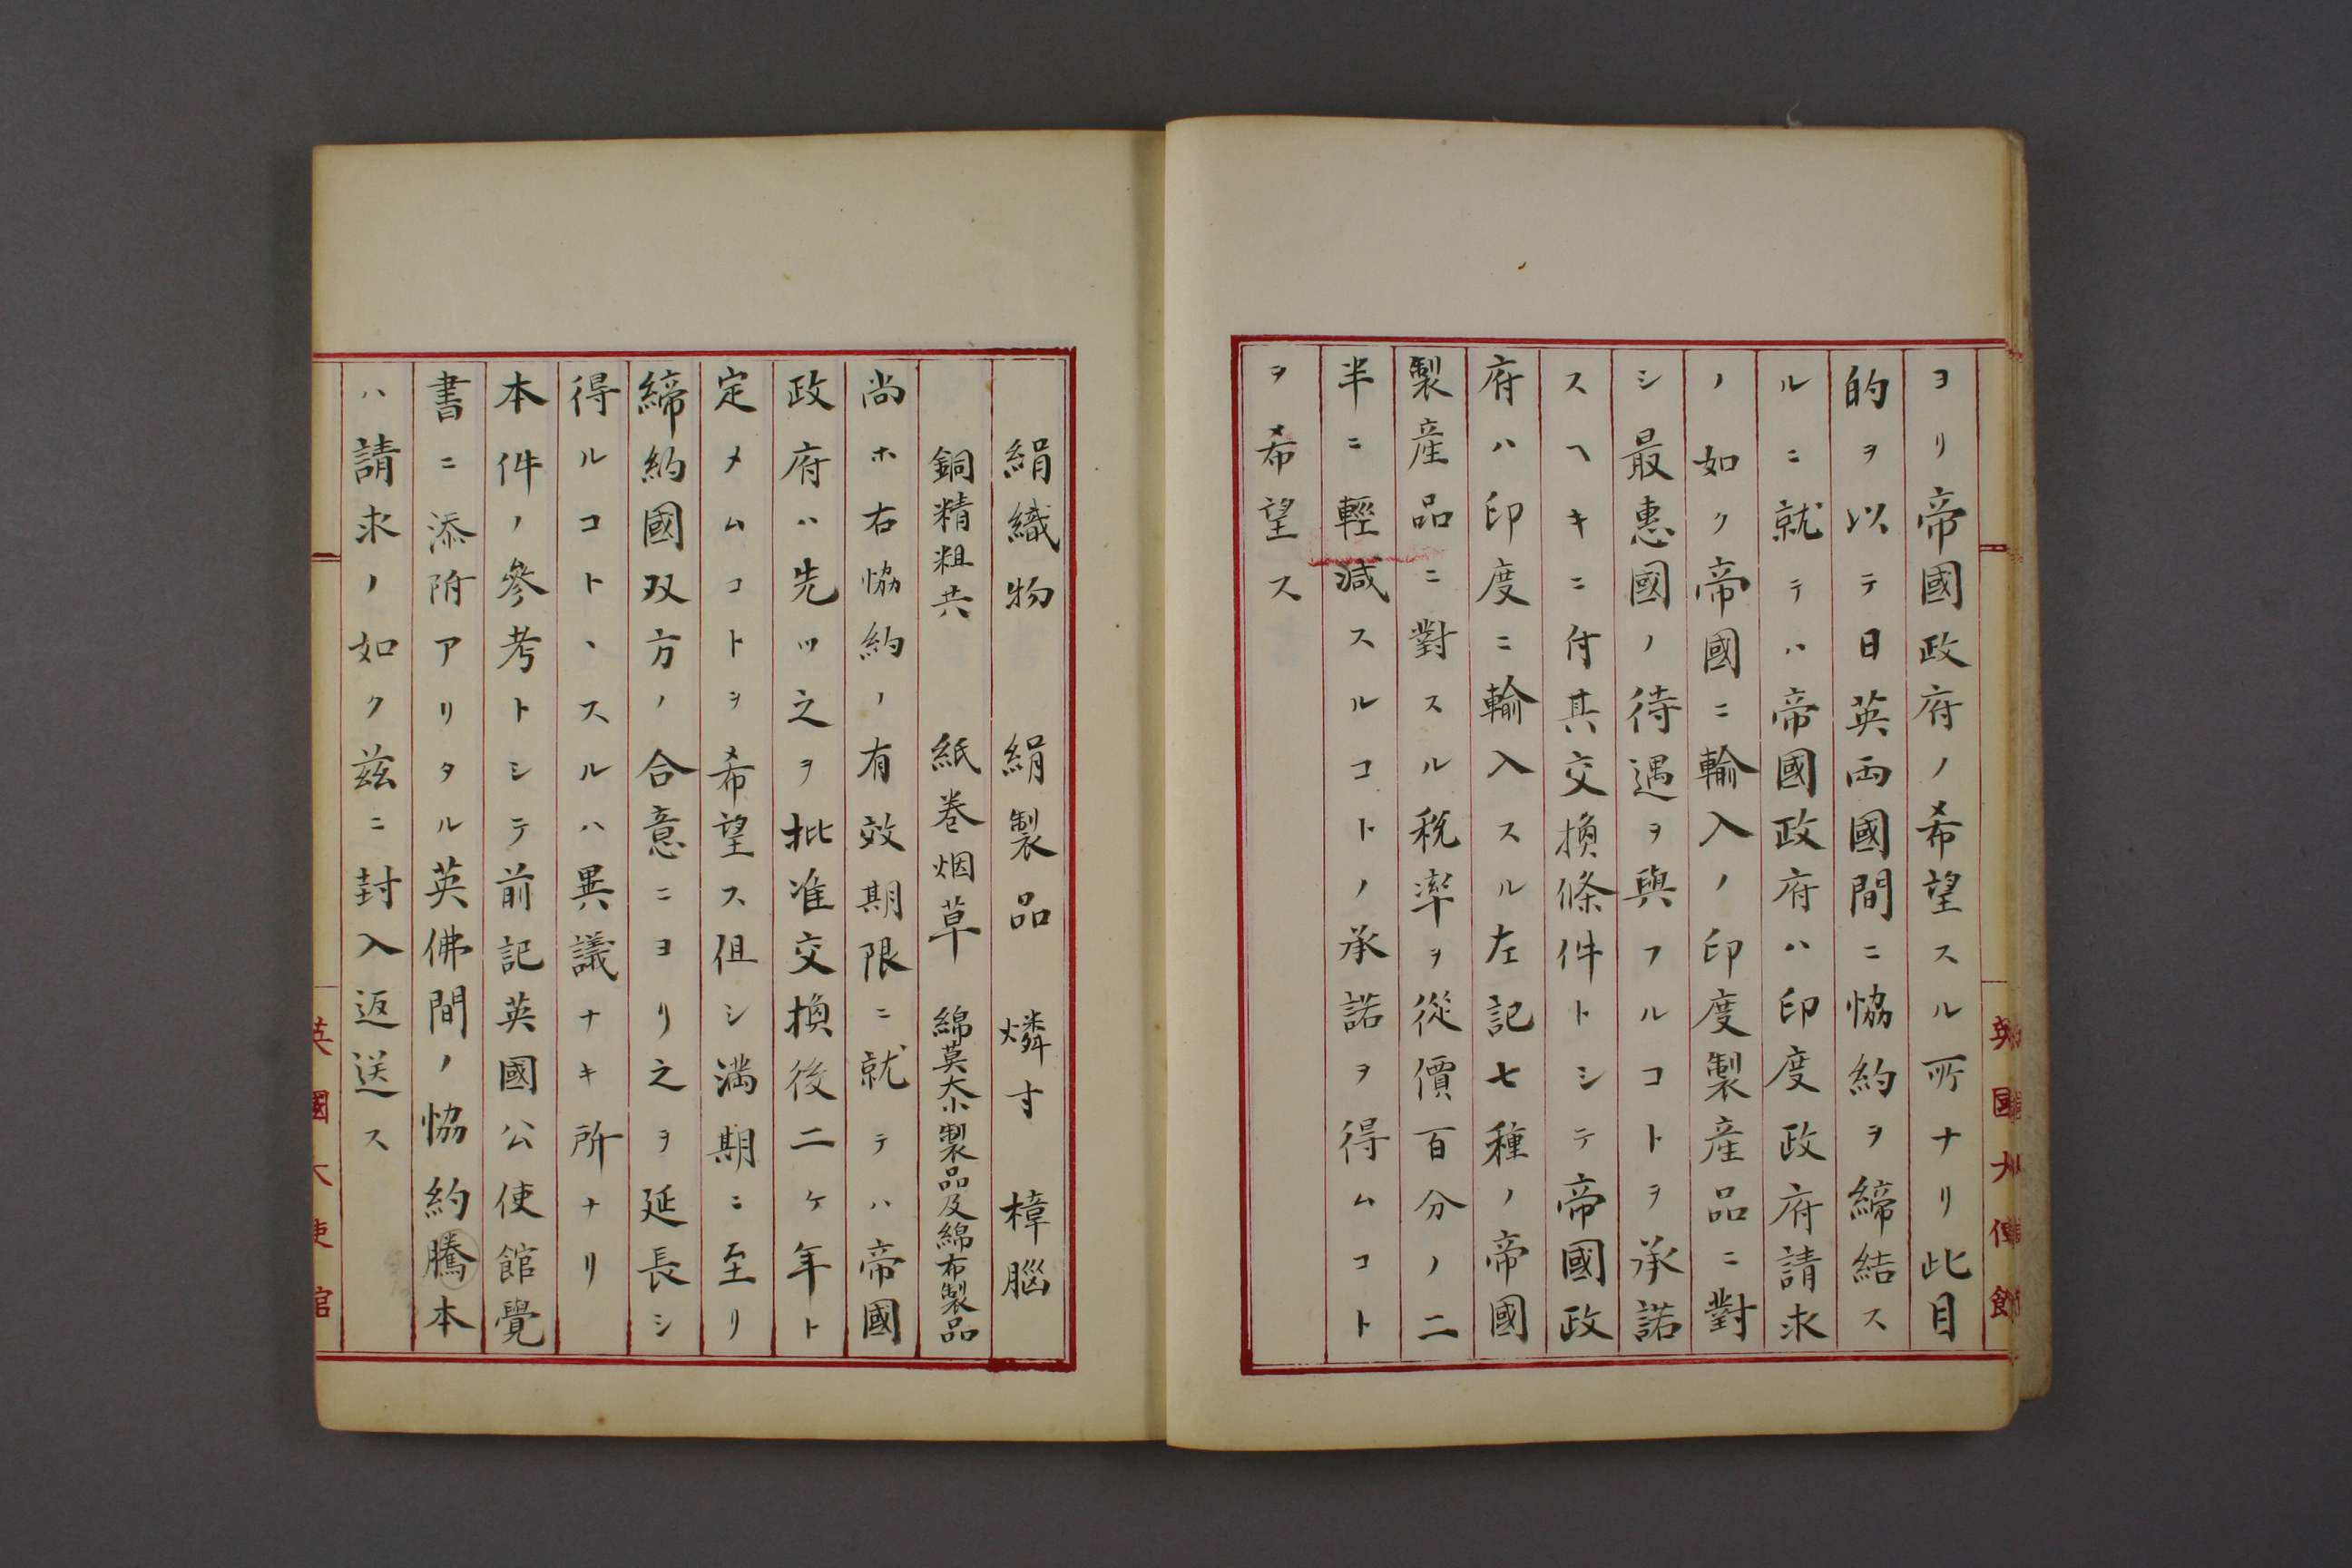 ヨリ帝國政府ノ希望スル所ナリ此目
的ヲ以テ日英両國間ニ恊約ヲ締結ス
ルニ就テハ帝國政府ハ印度政府請求
ノ如ク帝國ニ輸入ノ印度製産品ニ對
シ最惠國ノ待遇ヲ與フルコトヲ承諾
スヘキニ付其交換條件トシテ帝國政
府ハ印度ニ輸入スル左記七種ノ帝國
製産品ニ對スル税率ヲ從價百分ノ二
半ニ輕減スルコトノ承諾ヲ得ムコト
ヲ希望ス
絹織物 絹製品 燐寸 樟腦
銅精粗共 紙巻烟草 綿莫大小製品及綿布製品
尚ホ右恊約ノ有效期限ニ就テハ帝國
政府ハ先ツ之ヲ批准交換後二ヶ年ト
定メムコトヲ希望ス但シ満期ニ至リ
締約國双方ノ合意ニヨリ之ヲ延長シ
得ルコトヽスルハ異議ナキ所ナリ
本件ノ參考トシテ前記英國公使館覺
書ニ添附アリタル英佛間ノ恊約騰本
ハ請求ノ如ク茲ニ封入返送ス
英國大使館